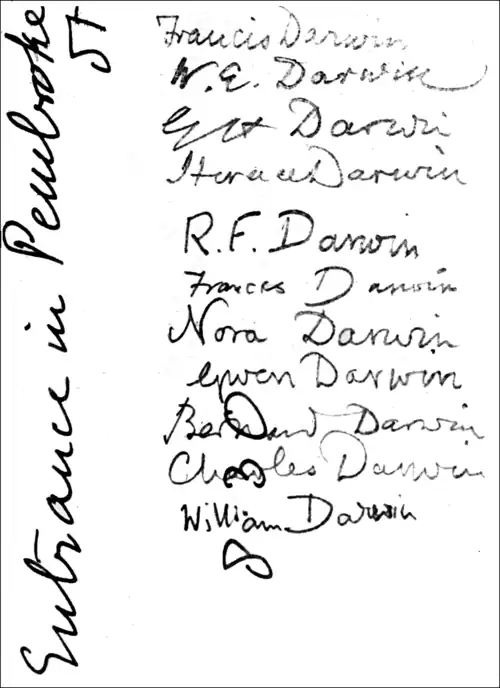 Entrance in Pembroke
St
Francis Darwin
W. E. Darwin
Darwin
Horace Darwin
R. F. Darwin
Frances Darwin
Nora Darwin
Gwen Darwin
Bernard Darwin
Charles Darwin
William Darwin